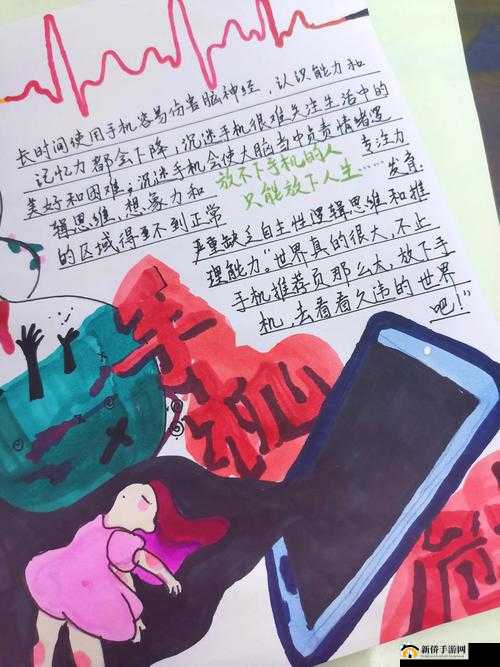 长时间使用手机容易伤害脑神经，认识能力和
记忆力都会下降，沉迷手机很难关注生活中的
美好和困难，沉迷手机会使大脑当中负责情绪逻
辑思维，想象力和
专注力
的区域得不到正常
发育
放不下手机的人
只能放下人生……
严重缺乏自主性逻辑思维和推
理能力。“世界真的很大，不止
手机推荐页那么大，放下手
机，去看看久违的世界
吧！”
手机
危
新侨手游网